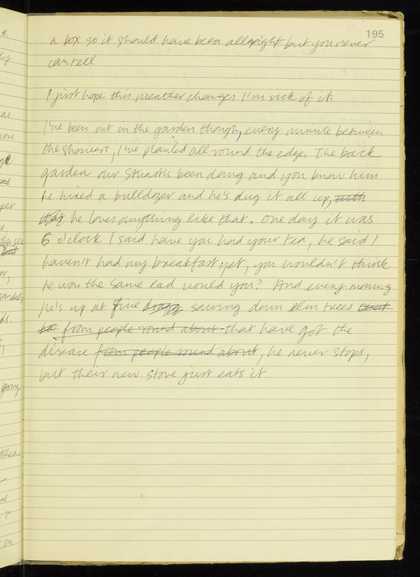 195
a box so it should have been all right but you never
can tell
I just hope this weather changes I'm sick of it.
I've been out in the garden though, every minute between
the showers, I've planted all round the edge. The back
garden our Stuarts been doing and you know him
he hired a bulldozer and he's dug it all up, with
he loves anything like that. One day it was
6 o'clock I said have you had your tea, he said I
haven't had my breakfast yet, you wouldn't think
he was the same lad would you? And every morning
he's up at five sawing down elm trees that
from people round about that have got the
disease from people round about, he never stops,
but their new stove just eats it